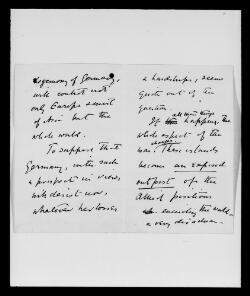 hegemony of Germany,
will control not
only Europe &
of Asia but the
whole world.
To suppose that
Germany, with such
a prospect in view,
will desist now,
whatever her losses
& hardships, seems
quite out of the
question.
all these things
If happens, the
whole aspect of the
war changes. These islands
become an exposed
outpost of the
Allied positions
encircling the world –
a very disadvan-